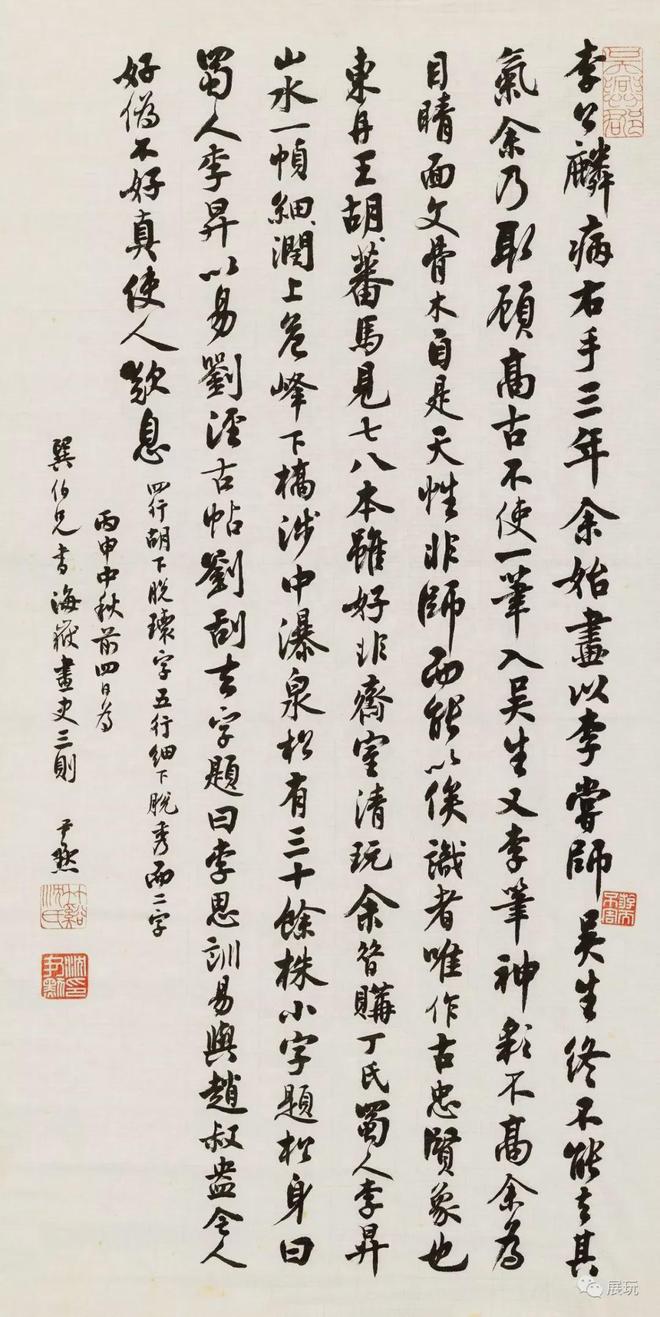 李公麟病右手三年余始畫以李嘗師吳生終不能去其
氣余乃取顧高古不使一筆入吳生又李筆神彩不高余為
目睛面文骨木自是天性非師而能以俟識者唯作古忠賢象也
東丹王胡蕃馬見七八本雖好非齋室清玩余昔購丁氏蜀人李昇
山水一幀細潤上危峰下橋涉中瀑泉松有三十餘株小字題松身曰
蜀人李昇以易劉涇古帖劉刮去字題曰李思訓易與趙叔盎令人
好偽不好真使人歎息
四行胡下脫瓌字五行細下脫秀而二字
丙申中秋前四日為
巽伯兄書海嶽畫史三則 尹默
竹谿沈氏
沈尹默印
展玩